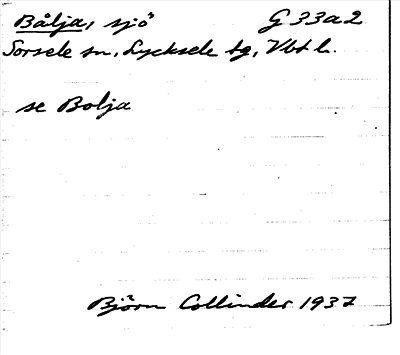 Bålja, sjö G 33a2
Sorsele sn, Lycksele tg, Vbtl.
se Bolja
Björn Collinder 1937